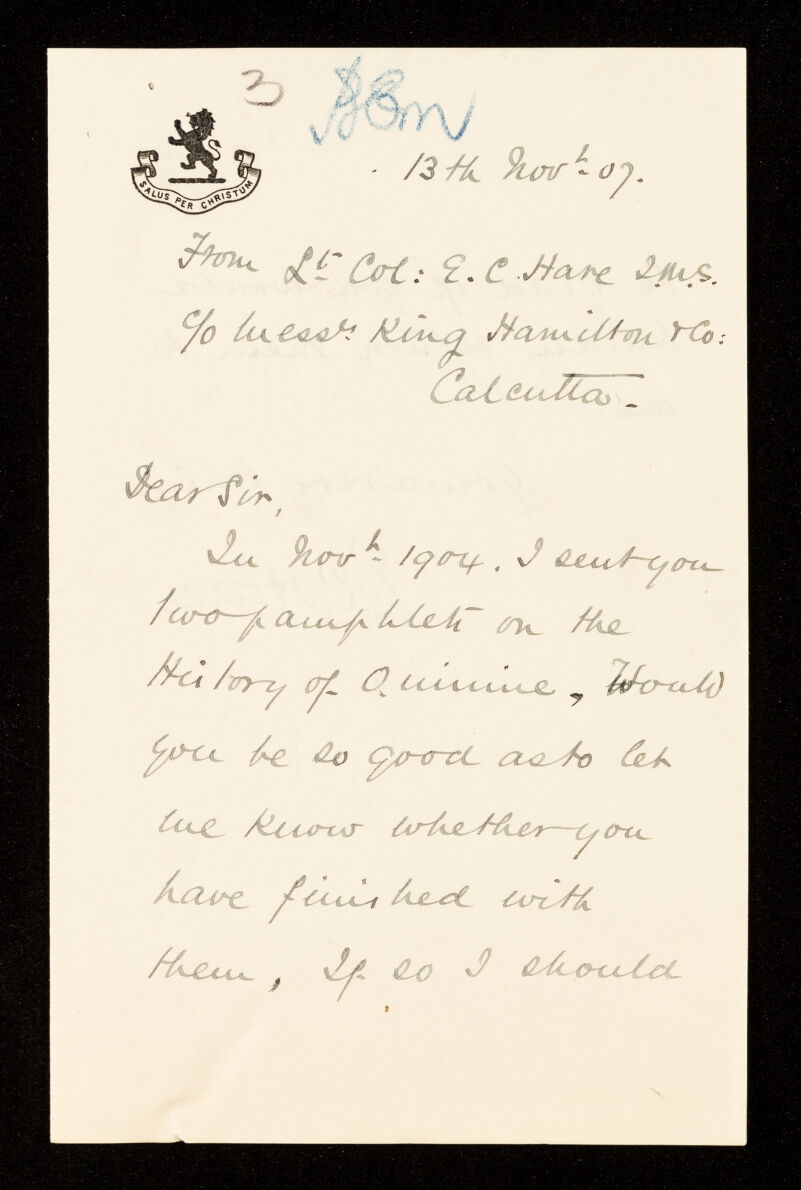 3
SALUS PER CHRISTUM
13th Novh 07.
From Lt Col: E. C. Hare I.M.S.
c/o Messrs King Hamilton & Co:
Calcutta.
Dear Sir,
In Novh 1904. I sent you
two pamphlets on the
History of Quinine, Would
you be so good as to let
me know whether you
have finished with
them, If so I should